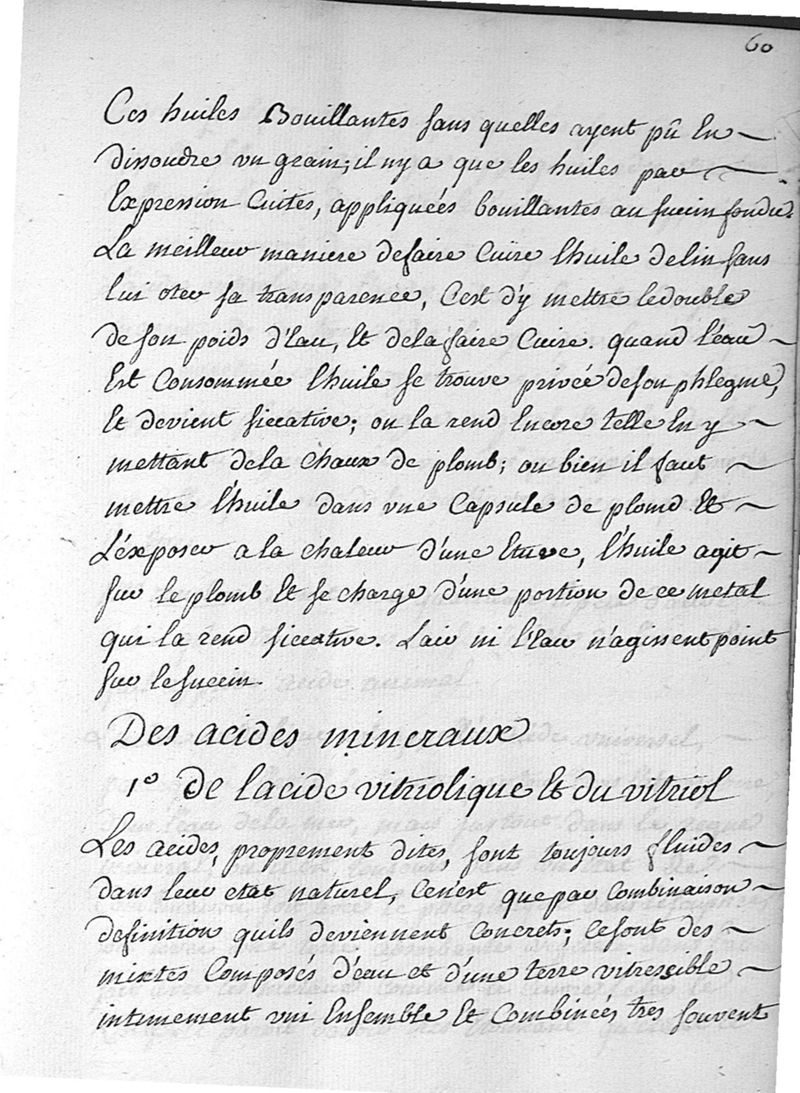 60
Ces huiles Bouillantes sans quelles ayent pû En
dissoudre un grain; il ny a que les huiles par
Expression Cuites, appliquées bouillantes au succin fondu.
La meilleur maniere de faire Cuire l'huile de lin sans
lui oter sa transparence, C'est d'y mettre le double
de son poids d'Eau, Et de la faire Cuire. quand l'eau
Est Consommée l'huile se trouve privée de son phlegme,
Et devient siccative; on la rend Encore telle En y
mettant de la chaux de plomb; ou bien il faut
mettre l'huile dans une Capsule de plomb Et
L'éxposer a la chaleur d'une Etuve, l'huile agit
sur le plomb Et se charge d'une portion de ce metal
qui la rend siccative. L'air ni l'Eau n'agissent point
sur le succin.
Des acides mineraux
1° de lacide vitriolique Et du vitriol
Les acides, proprement dites, sont toujours fluides
dans leur etat naturel, Ce n'est que par Combinaison
definition quils deviennent Concrets; Ce sont des
mixtes Composés d'eau et d'une terre vitrescible
intimement uni Ensemble Et Combinées tres souvent